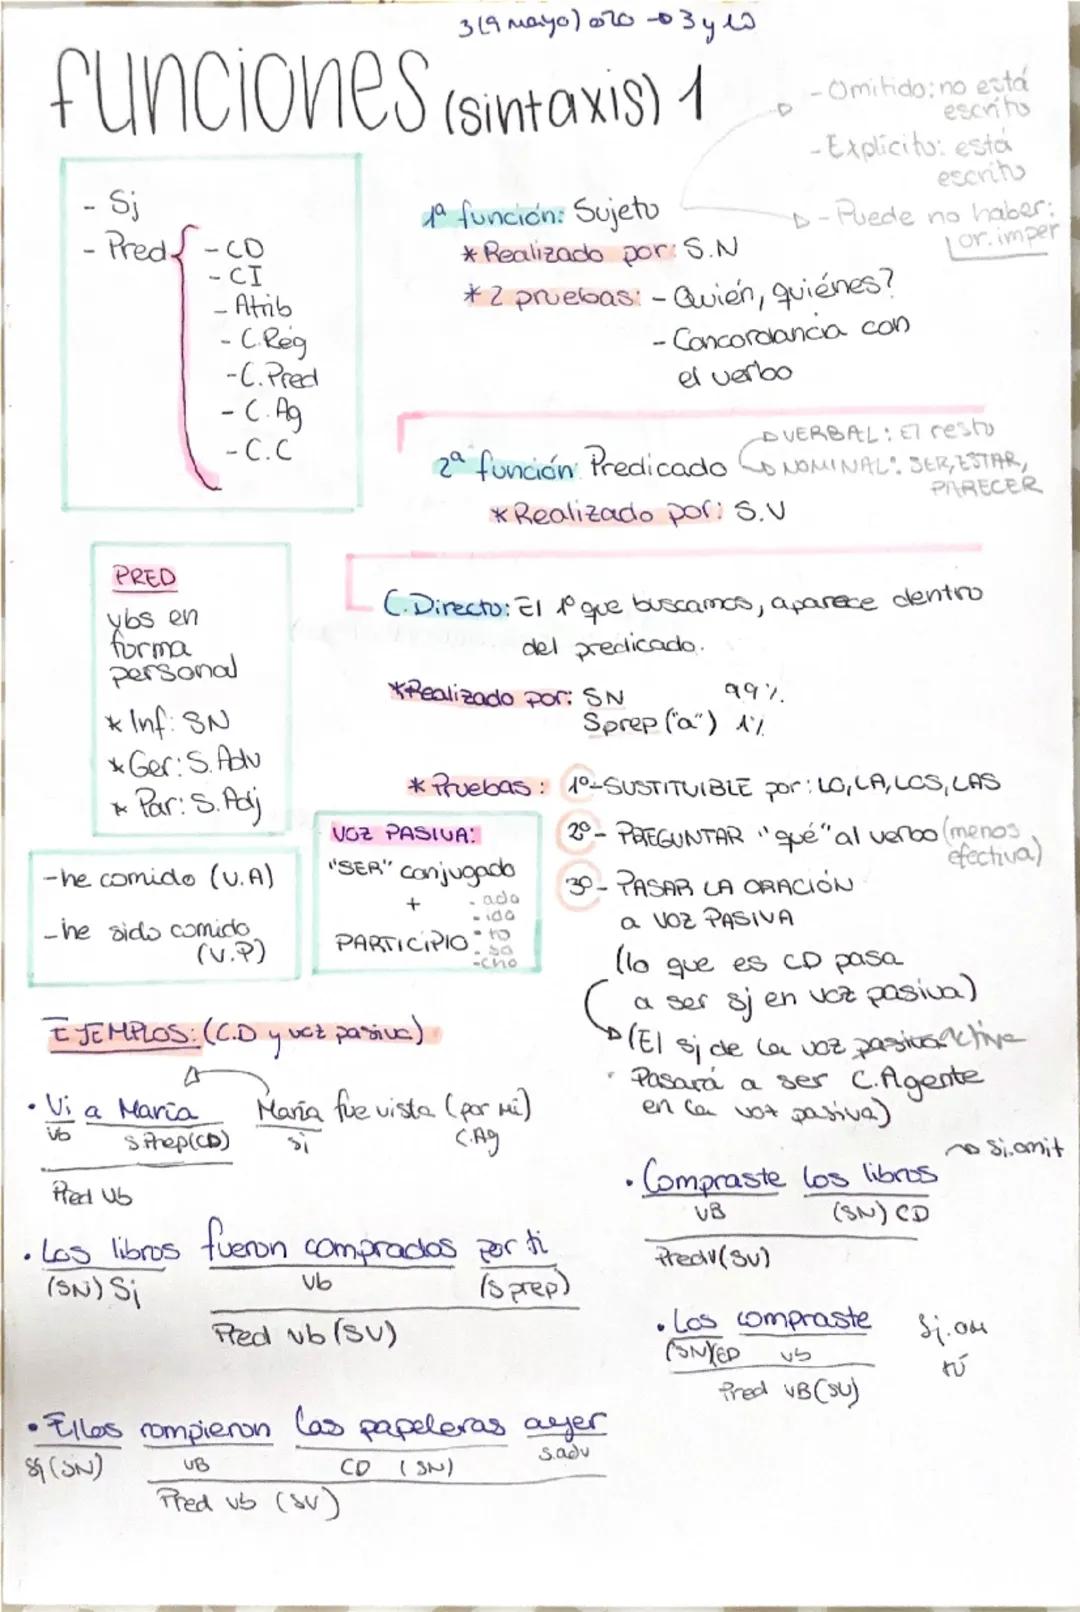 3 (9 mayo) 020 → 3 y 10
funciones (sintaxis) 1
- Omitido: no está
escrito
- Explícito: está
escrito
- Puede no haber:
or. imper
- Sj
- Pred
- CD
- CI
- Atrib
- C.Reg
- C.Pred
- C.Ag
- C.C
1ª función: Sujeto
* Realizado por: S.N
* 2 pruebas: - Quién, quiénes?
- Concordancia con
el verbo
2ª función: Predicado
VERBAL: El resto
NOMINAL: SER, ESTAR,
PARECER
* Realizado por: S.V
PRED
vbs en
forma
personal
* Inf: SN
* Ger: S.Adv
* Par: S.Adj
C.Directo: El 1º que buscamos, aparece dentro
del predicado.
* Realizado por: SN 99%
Sprep ("a") 1%
* Pruebas: 1º- SUSTITUIBLE por: LO, LA, LOS, LAS
2º- PREGUNTAR "qué" al verbo (menos
efectiva)
3º- PASAR LA ORACIÓN
a VOZ PASIVA
(lo que es CD pasa
a ser sj en voz pasiva)
(El sj de la voz pasiva active
Pasará a ser C.Agente
en la voz pasiva)
- he comido (V.A)
- he sido comido
(V.P)
VOZ PASIVA:
"SER" conjugado
+
PARTICIPIO
- ado
- ido
- to
- so
- cho
EJEMPLOS: (C.D y voz pasiva)
• Vi a María María fue vista (por mi)
vb S.Prep(CD) sj C.Ag
Pred Vb
• Los libros fueron comprados por ti
(SN) Sj Vb (S prep)
Pred vb (SV)
• Ellos rompieron las papeleras ayer
Sj (SN) VB CD (SN) S.adv
Pred vb (SV)
Sj. omit
• Compraste los libros
VB (SN) CD
PredV (SV)
• Los compraste Sj. om
(SN) CD vb tú
Pred VB (SV)